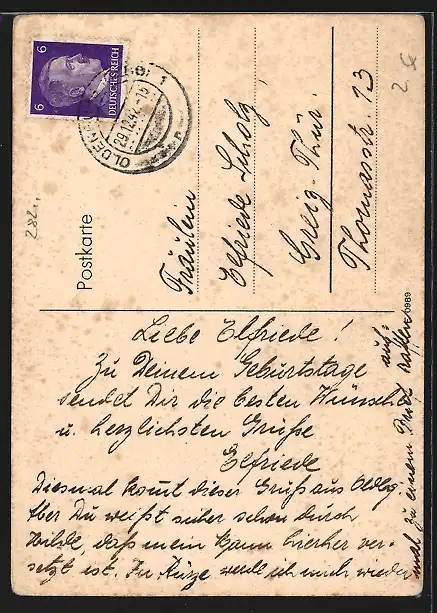 6 6
DEUTSCHES REICH
OLDENBURG (OLDB) 1
29.12.42
n
2 €
282.
Postkarte
Fräulein
Elfriede Scholz
Greiz-Thür.
Thomasstr. 13
0989
Liebe Elfriede!
Zu Deinem Geburtstage
sendet Dir die besten Wünsche
u. herzlichsten Grüße
Elfriede
Diesmal kommt dieser Gruß aus Oldbg.
Aber Du weißt sicher schon durch
Hilde, daß mein Mann hierher ver-
setzt ist. In Kürze werde ich mich wieder
mal zu einem Brief auf-
raffen.